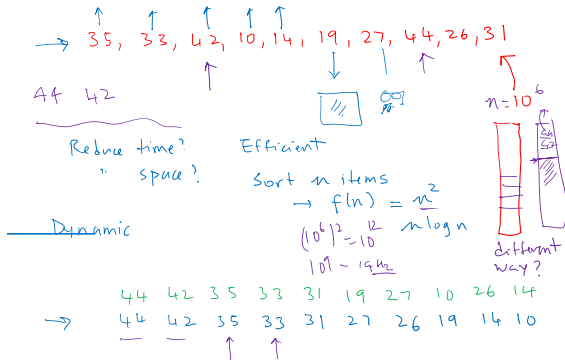 → 35, 33, 42, 10, 14, 19, 27, 44, 26, 31
44 42
n = 10^6
Reduce time?
" space?
Efficient
Sort n items
→ f(n) = n^2
n log n
(10^6)^2 = 10^12
10^9 ~ 1GHz
Dynamic
different
way?
44 42 35 33 31 19 27 10 26 14
→ 44 42 35 33 31 27 26 19 14 10